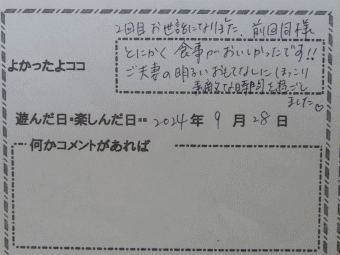 2回目お世話になりました。前回同様
とにかく食事がおいしかったです!!
よかったよココ
ご夫妻の明るいおもてなしにほっこり
素敵な時間を過ごし
ました♡
遊んだ日・楽しんだ日…2024年9月28日
何かコメントがあれば